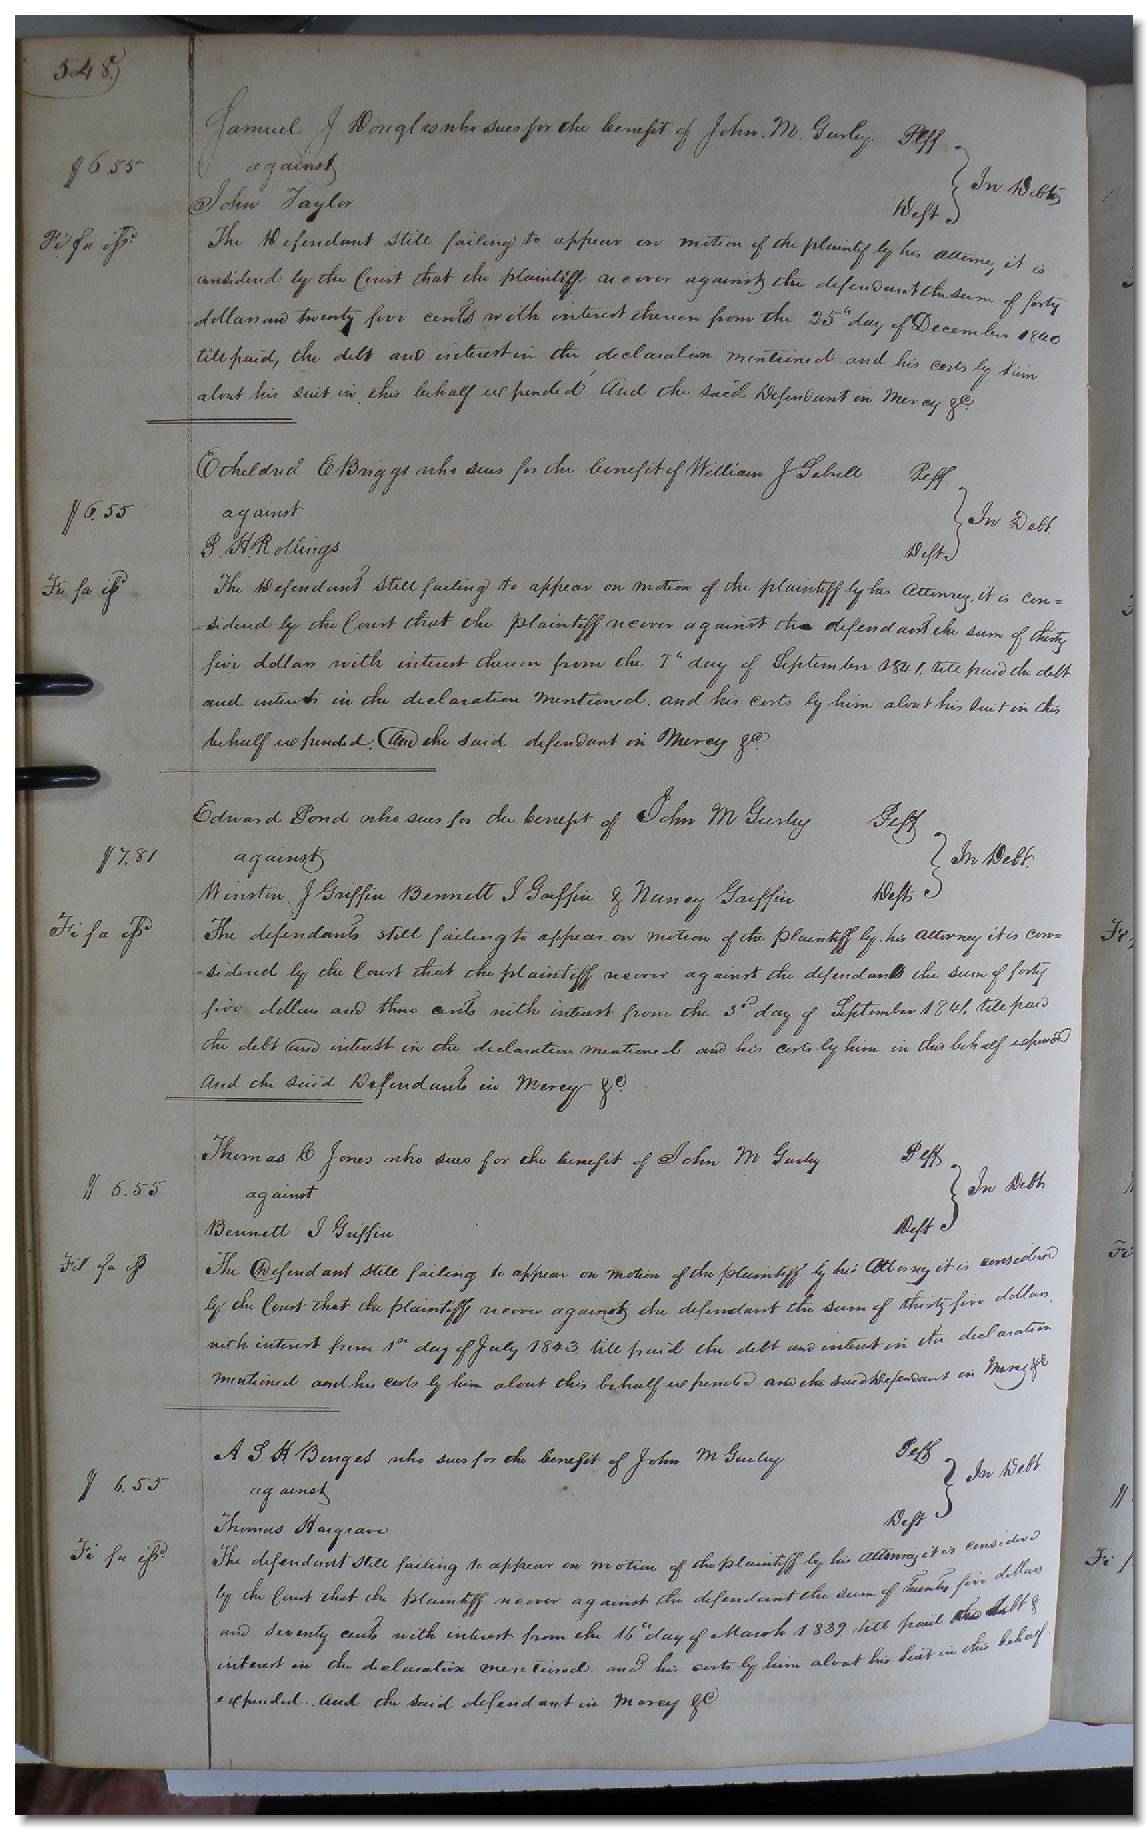 548
Samuel J Douglas who sues for the benefit of John. M. Gurley. Pltff
$6.55 against } In Debt
John Taylor Deft
Fi fa issd The Defendant still failing to appear on motion of the plaintiff by his attorney it is
considered by the Court that the plaintiff recover against the defendant the sum of forty
dollars and twenty five cents with interest thereon from the 25th day of December 1840
till paid, the debt and interest in the declaration mentioned and his costs by him
about his suit in this behalf expended And the said Defendant in Mercy &c.
Etheldred E Briggs who sues for the benefit of William J Pltff
$6.55 against } In Debt
P. H. Rollings Deft
Fi fa issd The Defendant still failing to appear on motion of the plaintiff by his Attorney it is con=
-sidered by the Court that the plaintiff recover against the defendant the sum of thirty
five dollars with interest thereon from the 7th day of September 1841, till paid the debt
and interest in the declaration mentioned. and his costs by him about his suit in this
behalf expended. And the said defendant in Mercy &c
Edward Pond who sues for the benefit of John M Gurley Pltff
$7.81 against } In Debt.
Winston J Griffin Bennett I Griffin & Nancy Griffin Defts
Fi fa issd The defendants still failing to appear on motion of the Plaintiff by his attorney it is con=
-sidered by the Court that the plaintiff recover against the defendants the sum of forty
five dollars and three cents with interest from the 3rd day of September 1841, till paid
the debt and interest in the declaration mentioned and his costs by him in this behalf expended
And the said Defendants in Mercy &c.
Thomas C Jones who sues for the benefit of John M Gurley Pltff
$6.55 against } In Debt
Bennett I Griffin Deft
Fi fa issd The Defendant still failing to appear on motion of the plaintiff by his Attorney it is considered
by the Court that the plaintiff recover against the defendant the sum of thirty five dollars.
with interest from 1st day of July 1843 till paid the debt and interest in the declaration
mentioned and his costs by him about this behalf expended and the said Defendant in Mercy &c
A S H Burges who sues for the benefit of John M Gurley Pltff
$6.55 against } In Debt
Thomas Hargrave Deft
Fi fa issd The defendant still failing to appear on motion of the plaintiff by his attorney it is considered
by the Court that the Plaintiff recover against the defendant the sum of twenty five dollars
and seventy cents with interest from the 16th day of March 1839 till paid the debt &
interest in the declaration mentioned and his costs by him about his suit in this behalf
expended. And the said defendant in Mercy &c